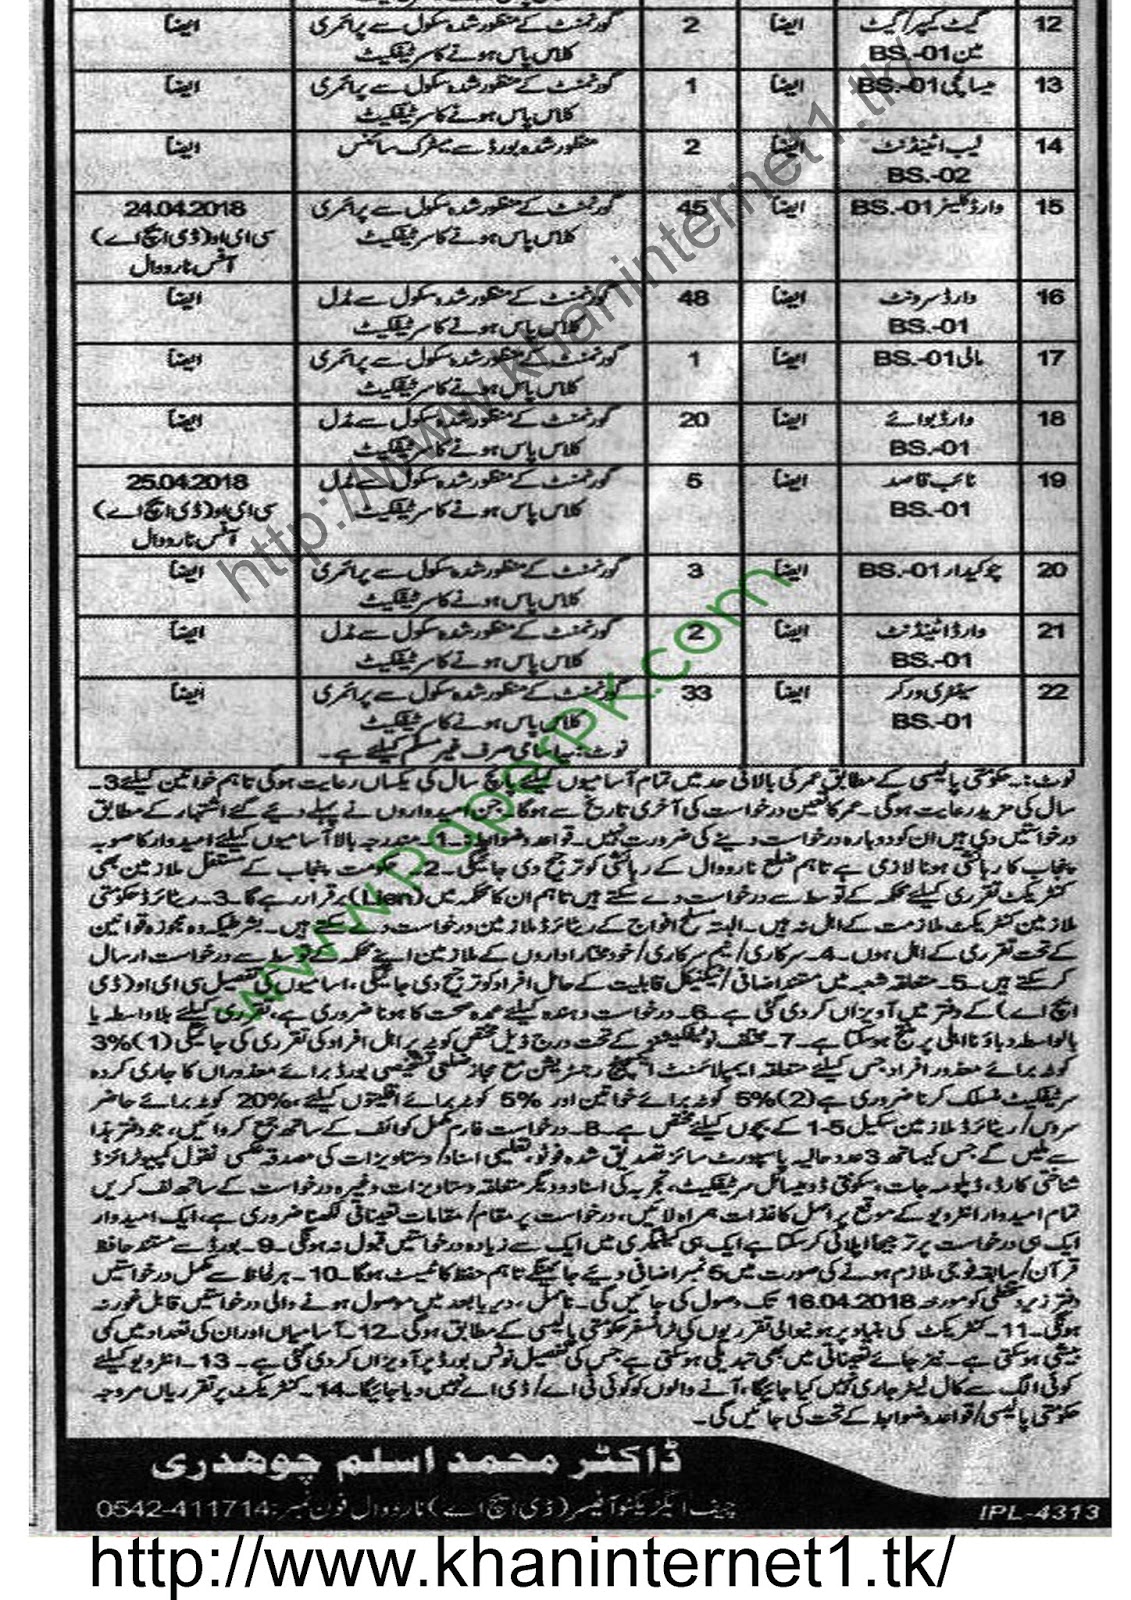 12 گیٹ کیپر/گیٹ ایضاً 2 گورنمنٹ کے منظور شدہ سکول سے پرائمری ایضاً
مین BS.-01 کلاس پاس ہونے کا سرٹیفکیٹ
13 BS.-01 ایضاً 1 گورنمنٹ کے منظور شدہ سکول سے پرائمری ایضاً
کلاس پاس ہونے کا سرٹیفکیٹ
14 لیب اٹینڈنٹ ایضاً 2 منظور شدہ بورڈ سے میٹرک سائنس ایضاً
BS.-02
15 وارڈ کلینر BS.-01 ایضاً 45 گورنمنٹ کے منظور شدہ سکول سے پرائمری 24.04.2018
کلاس پاس ہونے کا سرٹیفکیٹ سی ای او (ڈی ایچ اے)
آفس نارووال
16 وارڈ سرونٹ ایضاً 48 گورنمنٹ کے منظور شدہ سکول سے مڈل ایضاً
BS.-01 کلاس پاس ہونے کا سرٹیفکیٹ
17 مالی BS.-01 ایضاً 1 گورنمنٹ کے منظور شدہ سکول سے پرائمری ایضاً
کلاس پاس ہونے کا سرٹیفکیٹ
18 وارڈ بوائے ایضاً 20 گورنمنٹ کے منظور شدہ سکول سے مڈل ایضاً
BS.-01 کلاس پاس ہونے کا سرٹیفکیٹ
19 نائب قاصد ایضاً 5 گورنمنٹ کے منظور شدہ سکول سے مڈل 25.04.2018
BS.-01 کلاس پاس ہونے کا سرٹیفکیٹ سی ای او (ڈی ایچ اے)
آفس نارووال
20 چوکیدار BS.-01 ایضاً 3 گورنمنٹ کے منظور شدہ سکول سے پرائمری ایضاً
کلاس پاس ہونے کا سرٹیفکیٹ
21 وارڈ اٹینڈنٹ ایضاً 2 گورنمنٹ کے منظور شدہ سکول سے مڈل ایضاً
BS.-01 کلاس پاس ہونے کا سرٹیفکیٹ
22 سینٹری ورکر ایضاً 33 گورنمنٹ کے منظور شدہ سکول سے پرائمری ایضاً
BS.-01 کلاس پاس ہونے کا سرٹیفکیٹ
نوٹ: یہ اسامی صرف غیر مسلم کیلئے ہے۔
نوٹ:۔ حکومتی پالیسی کے مطابق عمر کی بالائی حد میں تمام آسامیوں کیلئے پانچ سال کی یکساں رعایت ہوگی تاہم خواتین کیلئے 3۔
سال کی مزید رعایت ہوگی۔ عمر کا تعین درخواست کی آخری تاریخ سے ہوگا۔ جن امیدواروں نے پہلے دیے گئے اشتہار کے مطابق
درخواستیں دی ہیں ان کو دوبارہ درخواست دینے کی ضرورت نہیں۔ قواعد و ضوابط:۔ 1۔ مندرجہ بالا آسامیوں کیلئے امیدوار کا صوبہ
پنجاب کا رہائشی ہونا لازمی ہے تاہم ضلع نارووال کے رہائشی کو ترجیح دی جائیگی۔ 2۔ حکومت پنجاب کے مستقل ملازمین بھی
کنٹریکٹ تقرری کیلئے محکمہ کے توسط سے درخواست دے سکتے ہیں تاہم ان کا محکمہ میں (Lien) برقرار رہے گا۔ 3۔ ریٹائرڈ حکومتی
ملازمین کنٹریکٹ ملازمت کے اہل نہ ہیں۔ البتہ مسلح افواج کے ریٹائرڈ ملازمین درخواست دے سکتے ہیں۔ بشرطیکہ وہ مجوزہ قوانین
کے تحت تقرری کے اہل ہوں۔ 4۔ سرکاری/نیم سرکاری/خود مختار اداروں کے ملازمین اپنے محکمہ کے توسط سے درخواست ارسال
کر سکتے ہیں۔ 5۔ متعلقہ شعبہ میں مستند اضافی/ٹیکنیکل قابلیت کے حامل افراد کو ترجیح دی جائیگی، اسامیوں کی تفصیل سی ای او (ڈی
ایچ اے) کے دفتر میں آویزاں کر دی گئی ہے۔ 6۔ درخواست دہندہ کیلئے عمدہ صحت کا ہونا ضروری ہے، تقرری کیلئے بلاواسطہ یا
بالواسطہ دباؤ نااہلی پر منتج ہو سکتا ہے۔ 7۔ مختلف نوٹیفکیشنز کے تحت درج ذیل مختص کوٹہ پر اہل افراد کی تقرری کی جائیگی (1) 3%
کوٹہ برائے معذور افراد، جس کیلئے متعلقہ ایمپلائمنٹ ایکسچینج رجسٹریشن مع مجاز ضلعی تشخیصی بورڈ برائے معذوراں کا جاری کردہ
سرٹیفکیٹ منسلک کرنا ضروری ہے (2) 5% کوٹہ برائے خواتین اور 5% کوٹہ برائے اقلیتوں کیلئے، 20% کوٹہ برائے حاضر
سروس/ریٹائرڈ ملازمین سکیل 1-5 کے بچوں کیلئے مختص ہے۔ 8۔ درخواست فارم مکمل کوائف کے ساتھ جمع کروائیں، جو دفتر ہذا
سے ملیں گے جس کیساتھ 3 عدد حالیہ پاسپورٹ سائز تصدیق شدہ فوٹو، تعلیمی اسناد/دستاویزات کی مصدقہ عکسی نقول کمپیوٹرائزڈ
شناختی کارڈ، ڈپلومہ جات، سکونتی ڈومیسائل سرٹیفکیٹ، تجربہ کی اسناد و دیگر متعلقہ دستاویزات وغیرہ درخواست کے ساتھ لف کریں
تمام امیدوار انٹرویو کے موقع پر اصل کاغذات ہمراہ لائیں، درخواست پر مقام/مقامات تعیناتی لکھنا ضروری ہے، ایک امیدوار
ایک ہی درخواست پر ترجیحاً اپلائی کر سکتا ہے ایک ہی کیٹیگری میں ایک سے زیادہ درخواستیں قبول نہ ہونگی۔ 9۔ بورڈ سے مستند حافظ
قرآن/سابقہ فوجی ملازم ہونے کی صورت میں 5 نمبر اضافی دیے جائینگے تاہم حفظ کا ٹیسٹ ہوگا۔ 10۔ ہر لحاظ سے مکمل درخواستیں
دفتر زیر دستخطی کو مورخہ 16.04.2018 تک وصول کی جائیں گی۔ نامکمل، دیر یا بعد میں موصول ہونے والی درخواستیں قابل غور نہ
ہونگی۔ 11۔ کنٹریکٹ کی بنیاد پر ہونیوالی تقرریوں کی ٹرانسفر حکومتی پالیسی کے مطابق ہوگی۔ 12۔ آسامیاں اور ان کی تعداد میں کمی
بیشی ہو سکتی ہے۔ نیز جائے تعیناتی میں بھی تبدیلی ہو سکتی ہے جس کی تفصیل نوٹس بورڈ پر آویزاں کر دی گئی ہے۔ 13۔ انٹرویو کیلئے
کوئی الگ سے کال لیٹر جاری نہیں کیا جائیگا، آنے والوں کو کوئی ٹی اے/ڈی اے نہیں دیا جائیگا۔ 14۔ کنٹریکٹ پر تقرریاں مروجہ
حکومتی پالیسی/قواعد و ضوابط کے تحت کی جائیں گی۔
ڈاکٹر محمد اسلم چوھدری
چیف ایگزیکٹو آفیسر (ڈی ایچ اے) نارووال فون نمبر: 0542-411714
IPL-4313
http://www.khaninternet1.tk/
www.PaperPK.com
http://www.khaninternet1.tk/